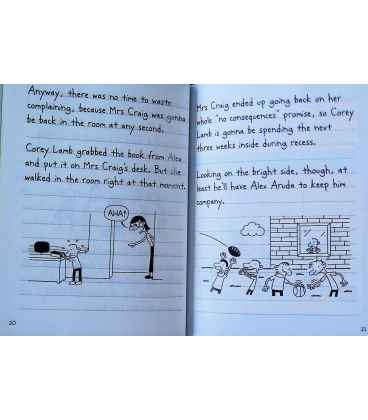 Anyway, there was no time to waste
complaining, because Mrs Craig was gonna
be back in the room at any second.
Corey Lamb grabbed the book from Alex
and put it on Mrs Craig's desk. But she
walked in the room right at that moment.
AHA!
20
Mrs Craig ended up going back on her
whole "no consequences" promise, so Corey
Lamb is gonna be spending the next
three weeks inside during recess.
Looking on the bright side, though, at
least he'll have Alex Aruda to keep him
company.
21